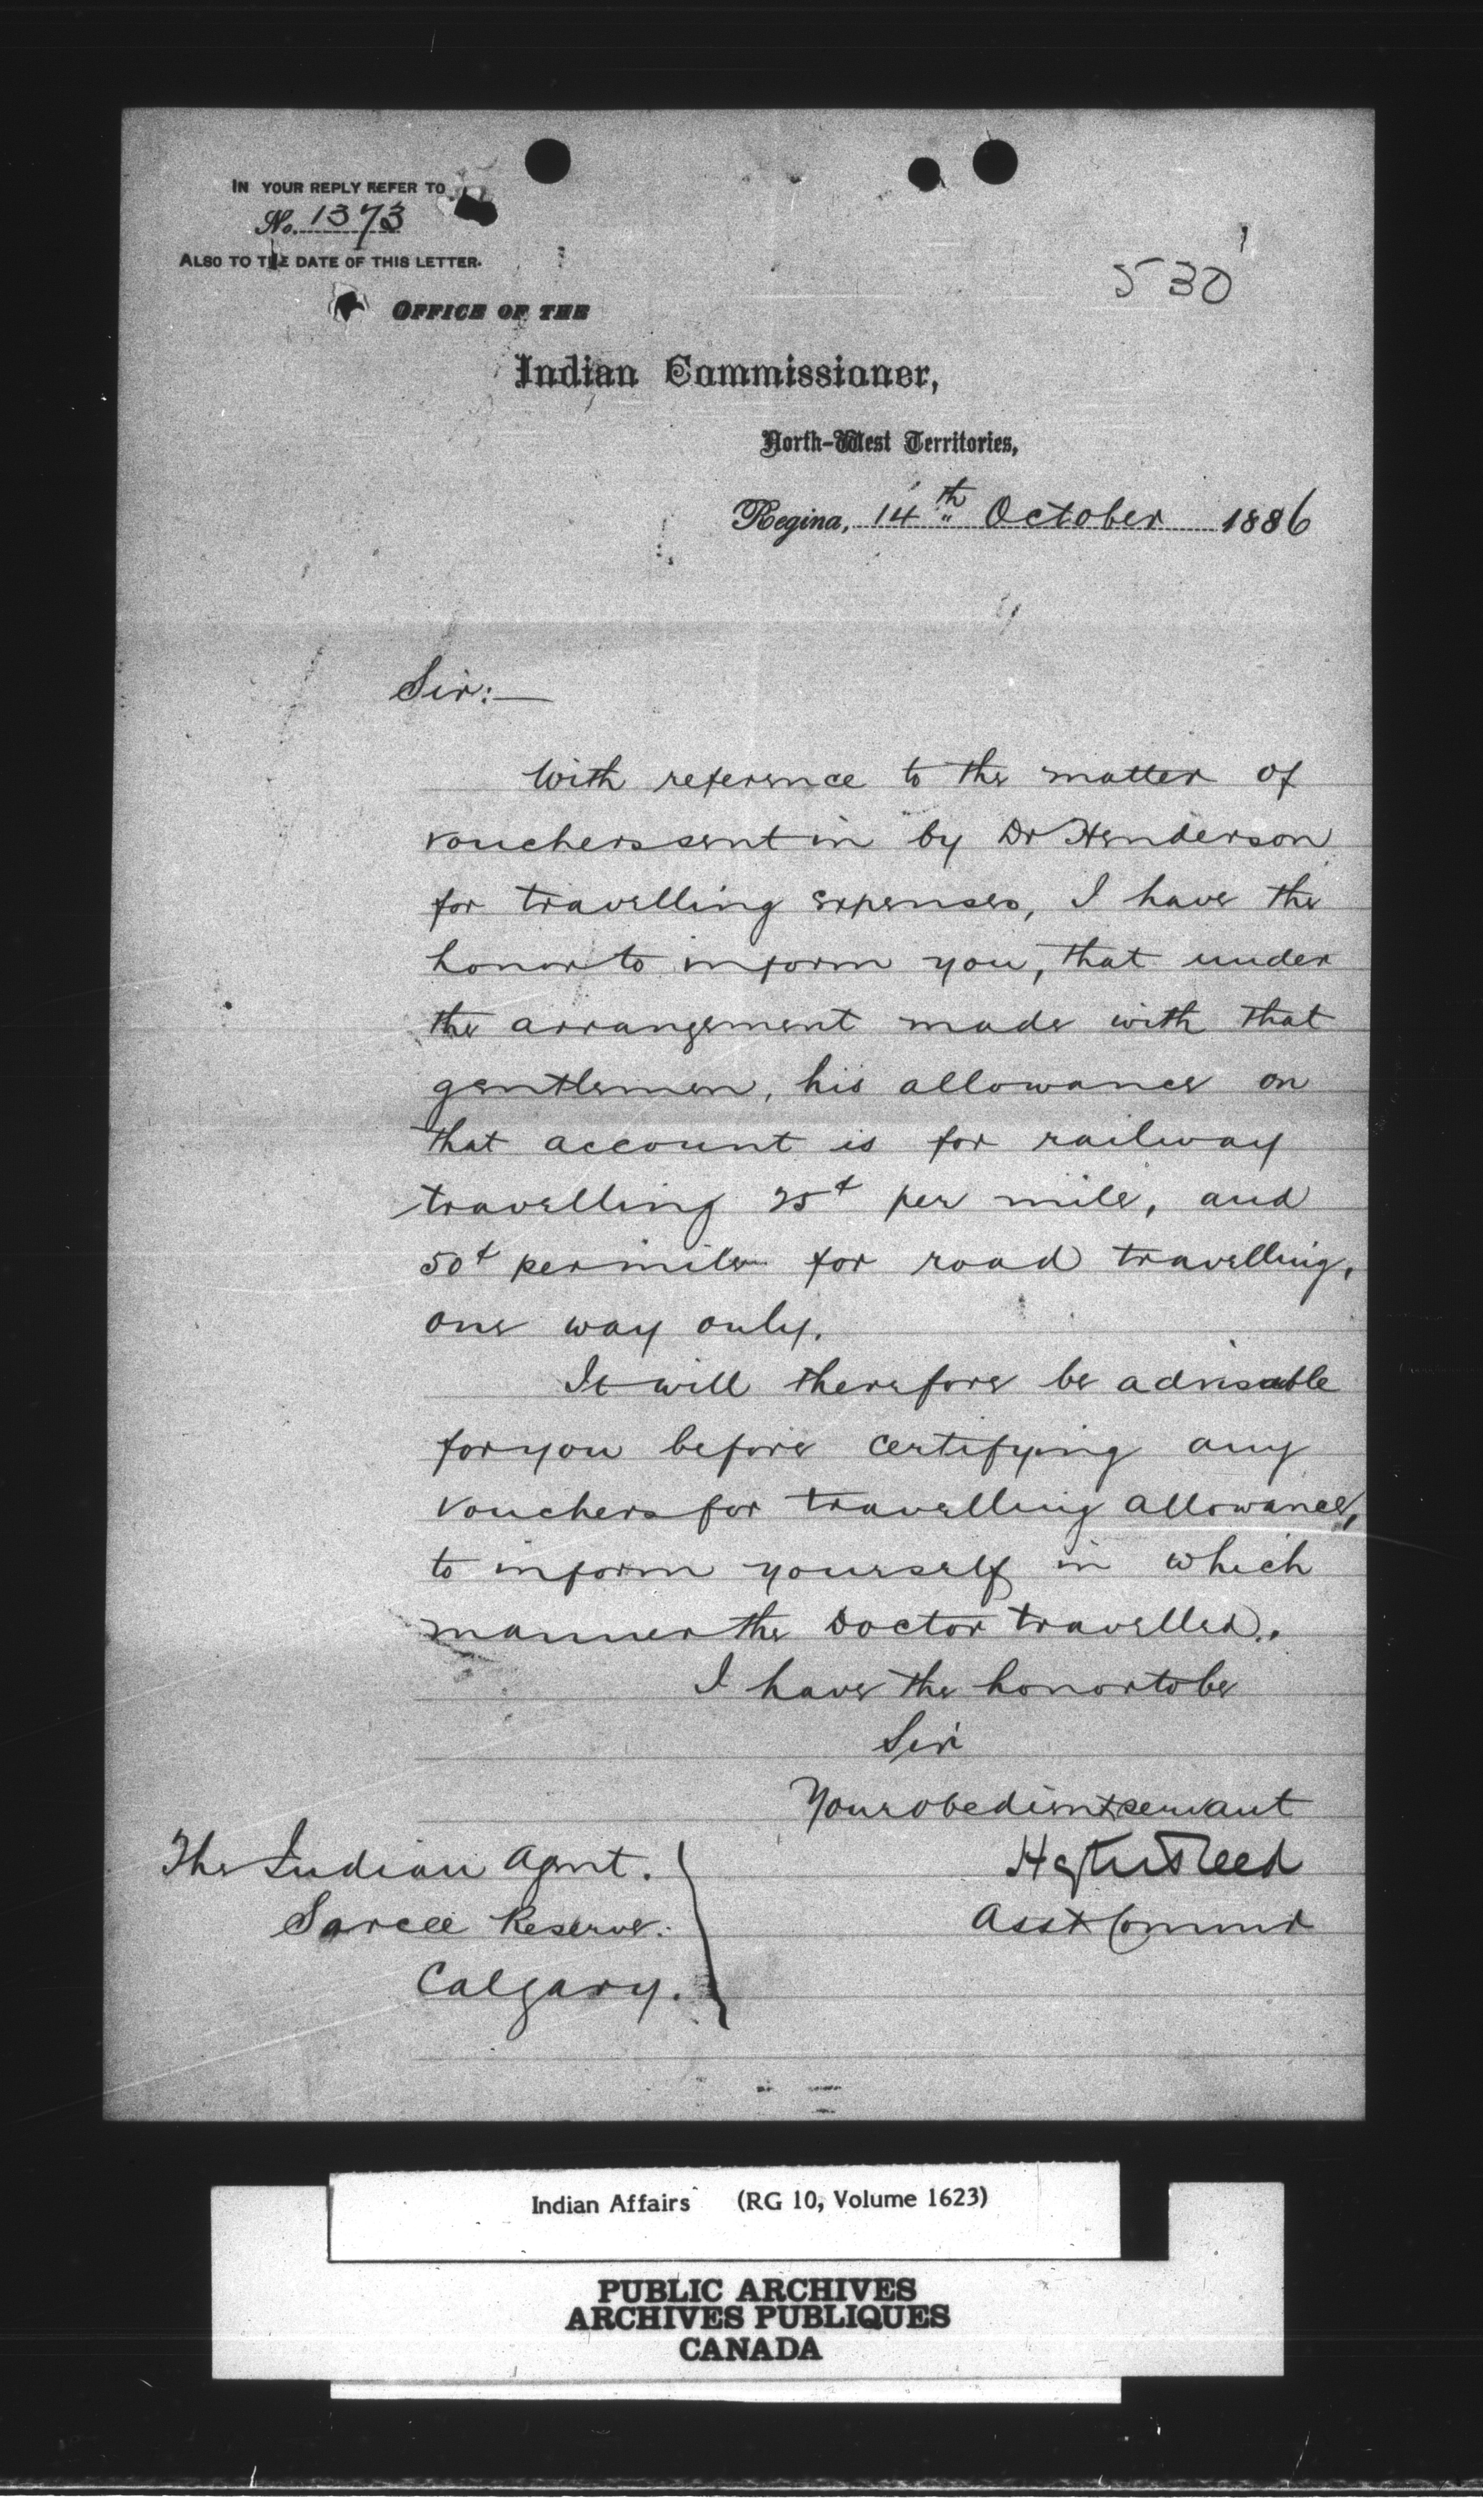 IN YOUR REPLY REFER TO
No. 1373
ALSO TO THE DATE OF THIS LETTER.
530
OFFICE OF THE
Indian Commissioner,
North-West Territories,
Regina, 14th October 1886
Sir:—
With reference to the matter of
vouchers sent in by Dr Henderson
for travelling expenses, I have the
honor to inform you, that under
the arrangement made with that
gentlemen, his allowance on
that account is for railway
travelling 25¢ per mile, and
50¢ per mile for road travelling,
one way only.
It will therefore be advisable
for you before certifying any
vouchers for travelling allowance,
to inform yourself in which
manner the Doctor travelled.
I have the honor to be
Sir
Your obedient servant
Hayter Reed
Asst Commr
The Indian Agent.
Sarcee Reserve.
Calgary.
Indian Affairs (RG 10, Volume 1623)
PUBLIC ARCHIVES
ARCHIVES PUBLIQUES
CANADA